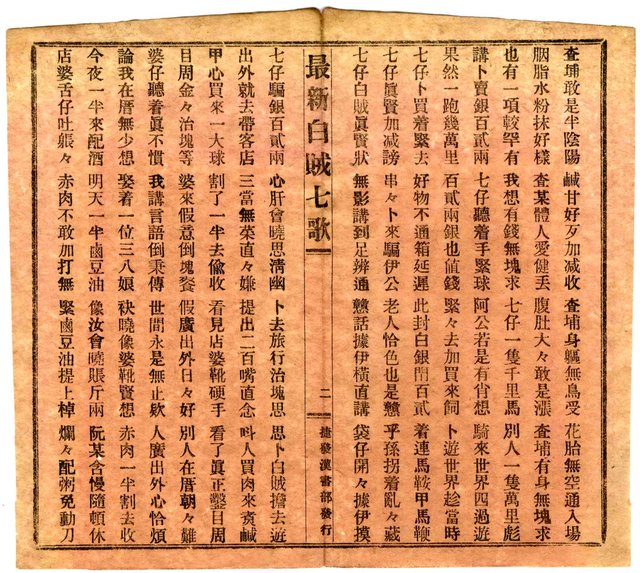 查埔敢是半陰陽 鹹甘好歹加減收 查埔身軀無鳥受 花胎無空通入場
胭脂水粉抹好樣 查某體人愛健丟 腹肚大々敢是漲 查埔有身無塊求
也有一項較罕有 我想有錢無塊求 七仔一隻千里馬 別人一隻萬里彪
講卜賣銀百貳兩 七仔聽着手緊球 阿公若是有肖想 騎來世界四過遊
果然一跑幾萬里 百貳兩銀也値錢 緊々去加買來飼 卜遊世界趁當時
七仔卜買着緊去 好物不通箱延遲 此封白銀閂百貳 着連馬鞍甲馬鞭
七仔眞賢加減謗 串々卜來騙伊公 老人恰色也是戇 乎孫拐着亂々藏
七仔白賊眞賢狀 無影講到足辨通 戇話據伊橫直講 袋仔開々據伊摸
最新白賊七歌 二 捷發漢書部發行
七仔騙銀百貳兩 心肝會曉思淸幽 卜去旅行治塊思 思卜白賊擔去遊
出外就去帶客店 三當無菜直々嫌 提出二百嘴直念 呌人買肉來煑鹹
甲心買來一大球 割了一半去偸收 看見店婆靴硬手 看了眞正鑿目周
目周金々治塊等 婆來假意倒塊 假廣出外日々好 別人在厝朝々難
婆仔聽着眞不慣 我講言語倒秉傳 世間永是無止欵 人廣出外心恰煩
論我在厝無少想 娶着一位三八娘 袂曉像婆靴賢想 赤肉一半割去收
今夜一半來配酒 明天一半鹵豆油 像汝會曉賬斤兩 阮某含慢隨頓休
店婆舌仔吐躼々 赤肉不敢加打無 緊鹵豆油提上棹 爛々配粥免動刀